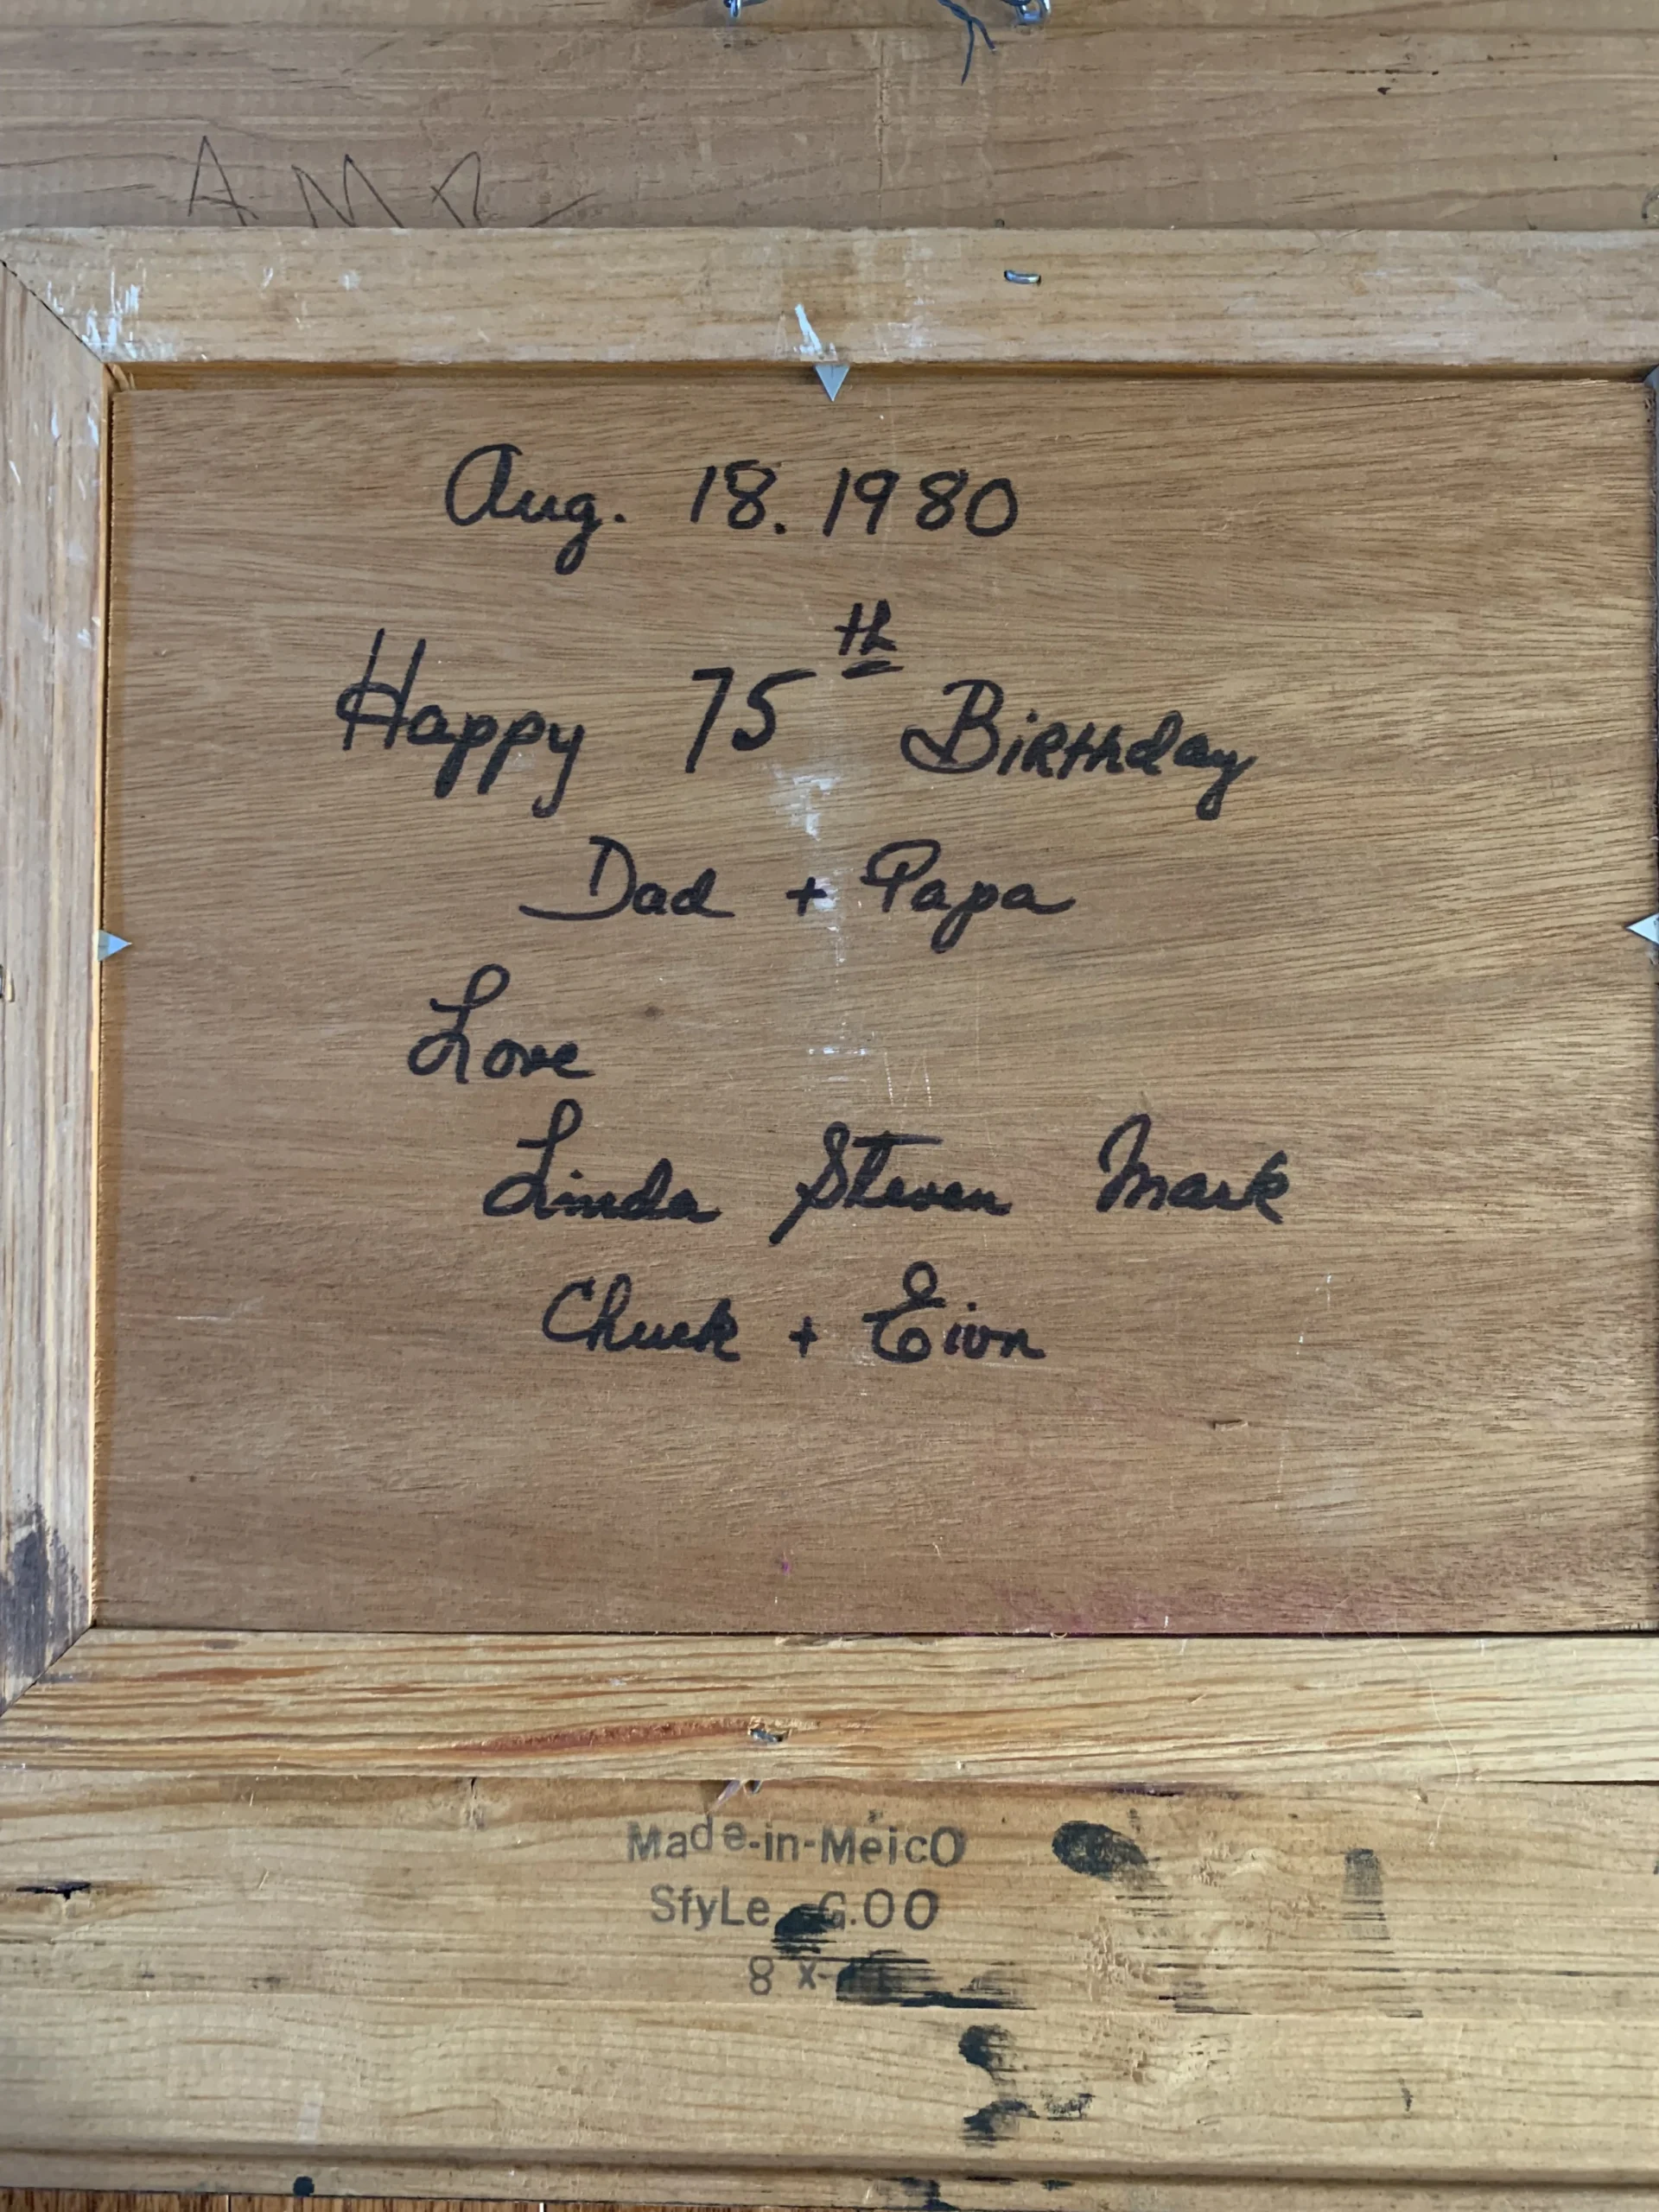 AMR
Aug. 18. 1980
Happy 75th Birthday
Dad + Papa
Love
Linda Steven Mark
Chuck + Eion
Made-in-MeicO
SfyLe G.00
8 X